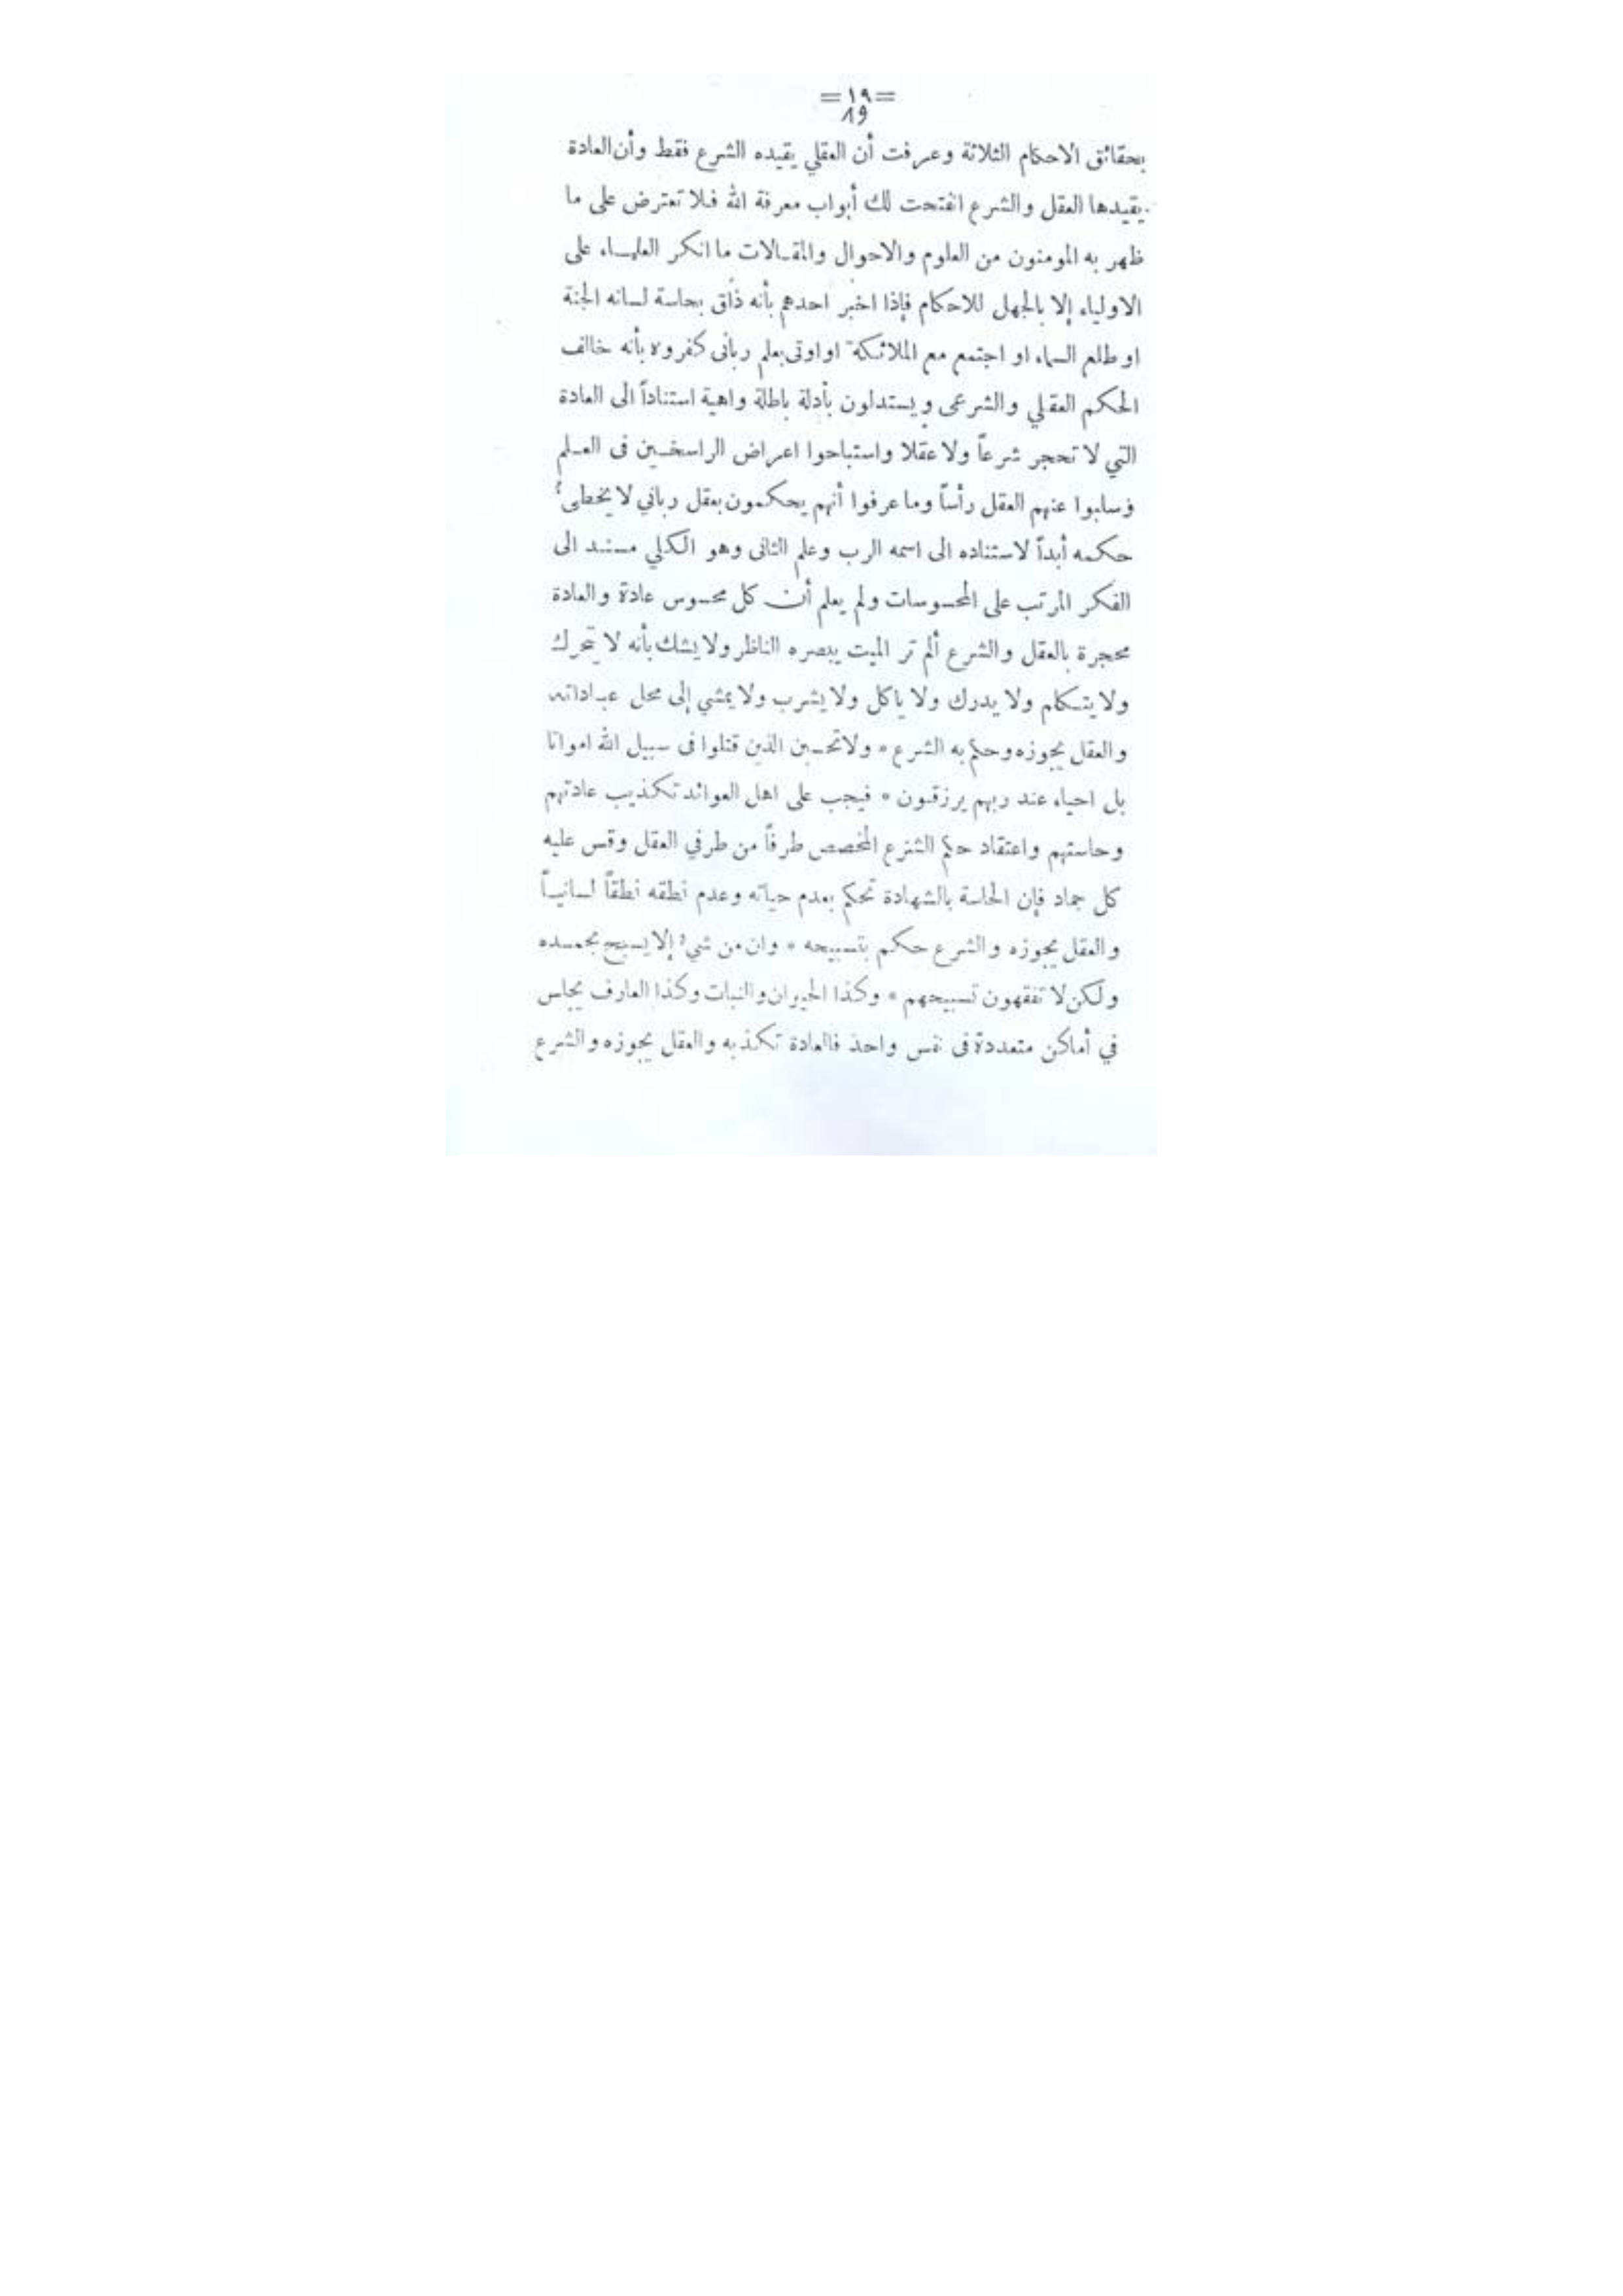 =١٩=
19
بحقائق الاحكام الثلاثة وعرفت أن العقلي يقيده الشرع فقط وأن العادة
يقيدها العقل والشرع انفتحت لك أبواب معرفة الله فلا تعترض على ما
ظهر به المومنون من العلوم والاحوال والمقالات ما انكر العلماء على
الاولياء إلا بالجهل للاحكام فإذا اخبر احدهم بأنه ذاق بحاسة لسانه الجنة
او طلع السماء او اجتمع مع الملائكة او اوتى بعلم ربانى كفروه بأنه خالف
الحكم العقلي والشرعى ويستدلون بأدلة باطلة واهية استناداً الى العادة
التي لا تحجر شرعاً ولا عقلا واستباحوا اعراض الراسخين فى العلم
وسلبوا عنهم العقل رأساً وما عرفوا أنهم يحكمون بعقل رباني لا يخطىء
حكمه أبداً لاستناده الى اسمه الرب وعلم الثانى وهو الكلي مستند الى
الفكر المرتب على المحسوسات ولم يعلم أن كل محسوس عادة والعادة
محجرة بالعقل والشرع ألم تر الميت يبصره الناظر ولا يشك بأنه لا تحرك
ولا يتكلم ولا يدرك ولا ياكل ولا يشرب ولا يمشي إلى محل عباداته
والعقل يجوزه وحكم به الشرع « ولا تحسبن الذين قتلوا فى سبيل الله امواتا
بل احياء عند ربهم يرزقون » فيجب على اهل العوائد تكذيب عادتهم
وحاستهم واعتقاد حكم الشرع المخصص طرفاً من طرفي العقل وقس عليه
كل جماد فإن الحاسة بالشهادة تحكم بعدم حياته وعدم نطقه نطقاً لسانياً
والعقل يجوزه والشرع حكم بتسبيحه « وان من شيء إلا يسبح بحمده
ولكن لا تفقهون تسبيحهم » وكذا الحيوان والنبات وكذا العارف يجلس
في أماكن متعددة فى نفس واحد فالعادة تكذبه والعقل يجوزه والشرع